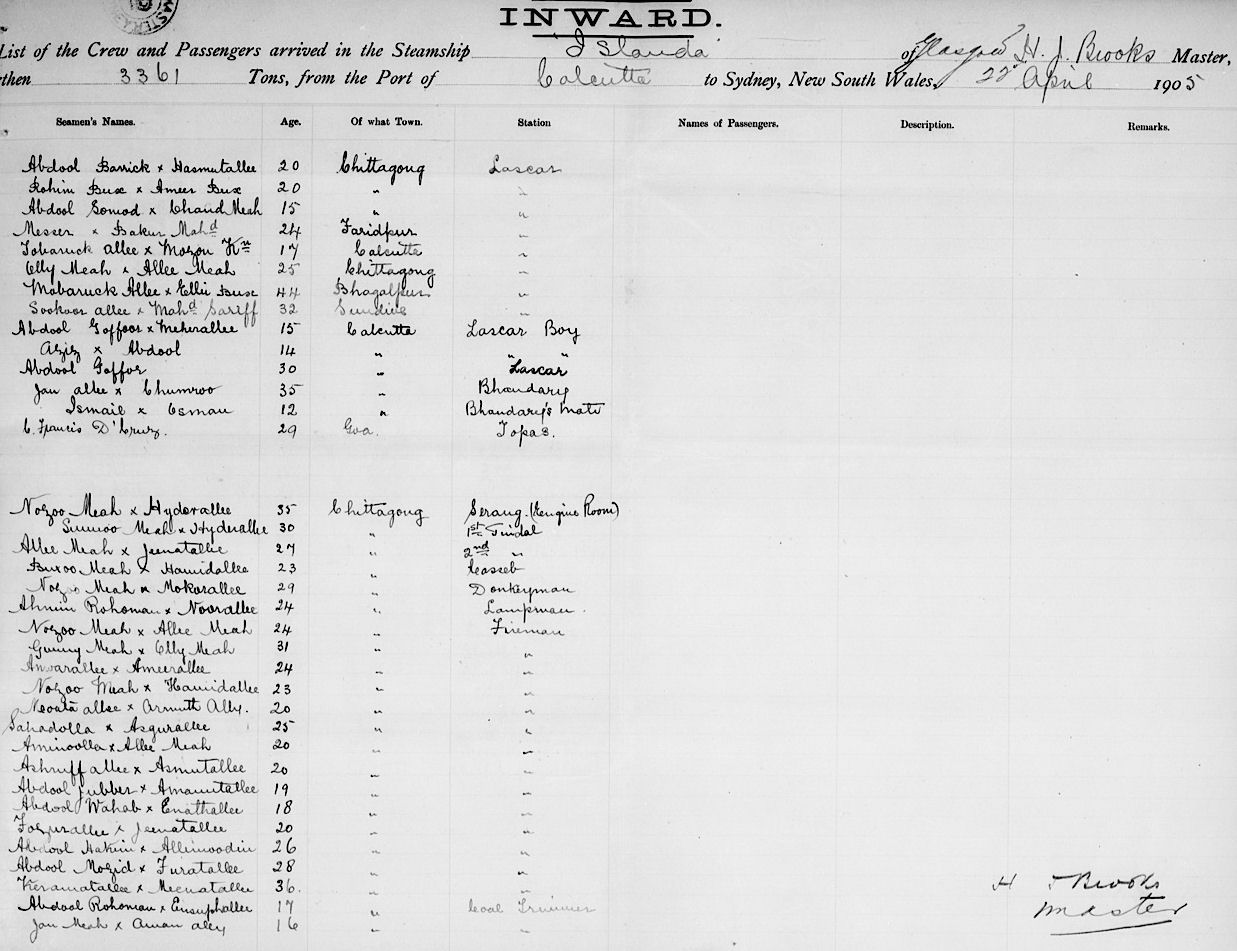 INWARD.
List of the Crew and Passengers arrived in the Steamship "Islanda" of Glasgow H. J. Brooks Master,
rthen 3361 Tons, from the Port of Calcutta to Sydney, New South Wales, 22nd April 1905
Seamen's Names. Age. Of what Town. Station Names of Passengers. Description. Remarks.
Abdool Barrick x Hasmutallee 20 Chittagong Lascar
Rohim Bux x Ameer Bux 20 " "
Abdool Somod x Chand Meah 15 " "
Messer x Bakur Mahd 24 Faridpur "
Tobaruck allee x Mozou Kn 17 Calcutta "
Elly Meah x Allee Meah 25 Chittagong "
Mobaruck Allee x Ellie Buxe 44 Bhagalpur "
Sookoor allee x Mahd Sariff 32 Sundive "
Abdool Goffoor x Meherallee 15 Calcutta Lascar Boy
Aziz x Abdool 14 " " "
Abdool Goffor 30 " "Lascar"
Jan allee x Chumroo 35 " Bhandary
Ismail x Esmau 12 " Bhandary's mate
C. Francis D'Cruz. 29 Goa. Topas.
Nozoo Meah x Hyderallee 35 Chittagong Serang. (Engine Room)
Meah x Hyderallee 30 " 1st Tindal
Allee Meah x Jeenatallee 27 " 2nd "
Buxoo Meah x Hamidallee 23 " Casseb
Nozoo Meah x Mokarallee 29 " Donkeyman
Rohoman x Noorallee 24 " Lampman.
Nozoo Meah x Allee Meah 24 " Fireman
Gunny Meah x Elly Meah 31 " "
Anwarallee x Ameerallee 24 " "
Nozoo Meah x Hamidallee 23 " "
allee x Armuth Ally. 20 " "
Sahadolla x Asgurallee 25 " "
Aminoolla x Allee Meah 20 " "
Ashruff allee x Asmutallee 20 " "
Abdool Jubber x Amanutallee 19 " "
Abdool Wahab x Enathallee 18 " "
Fozurallee x Jeenatallee 20 " "
Abdool Hakim x Allimoodin 26 " "
Abdool Mozid x Furatallee 28 " "
Keramatallee x Meenatallee 36. " "
H J Brooks
Abdool Rohoman x Eusuphallee 17 " Coal Trimmer
Master
Jan Meah x Aman aley 16 " "